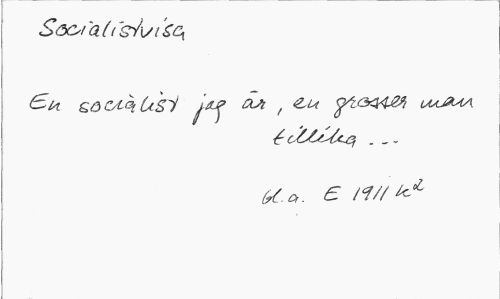 Socialistvisa
En socialist jag är, en grosser man
tillika...
bl.a. E 1911 k2